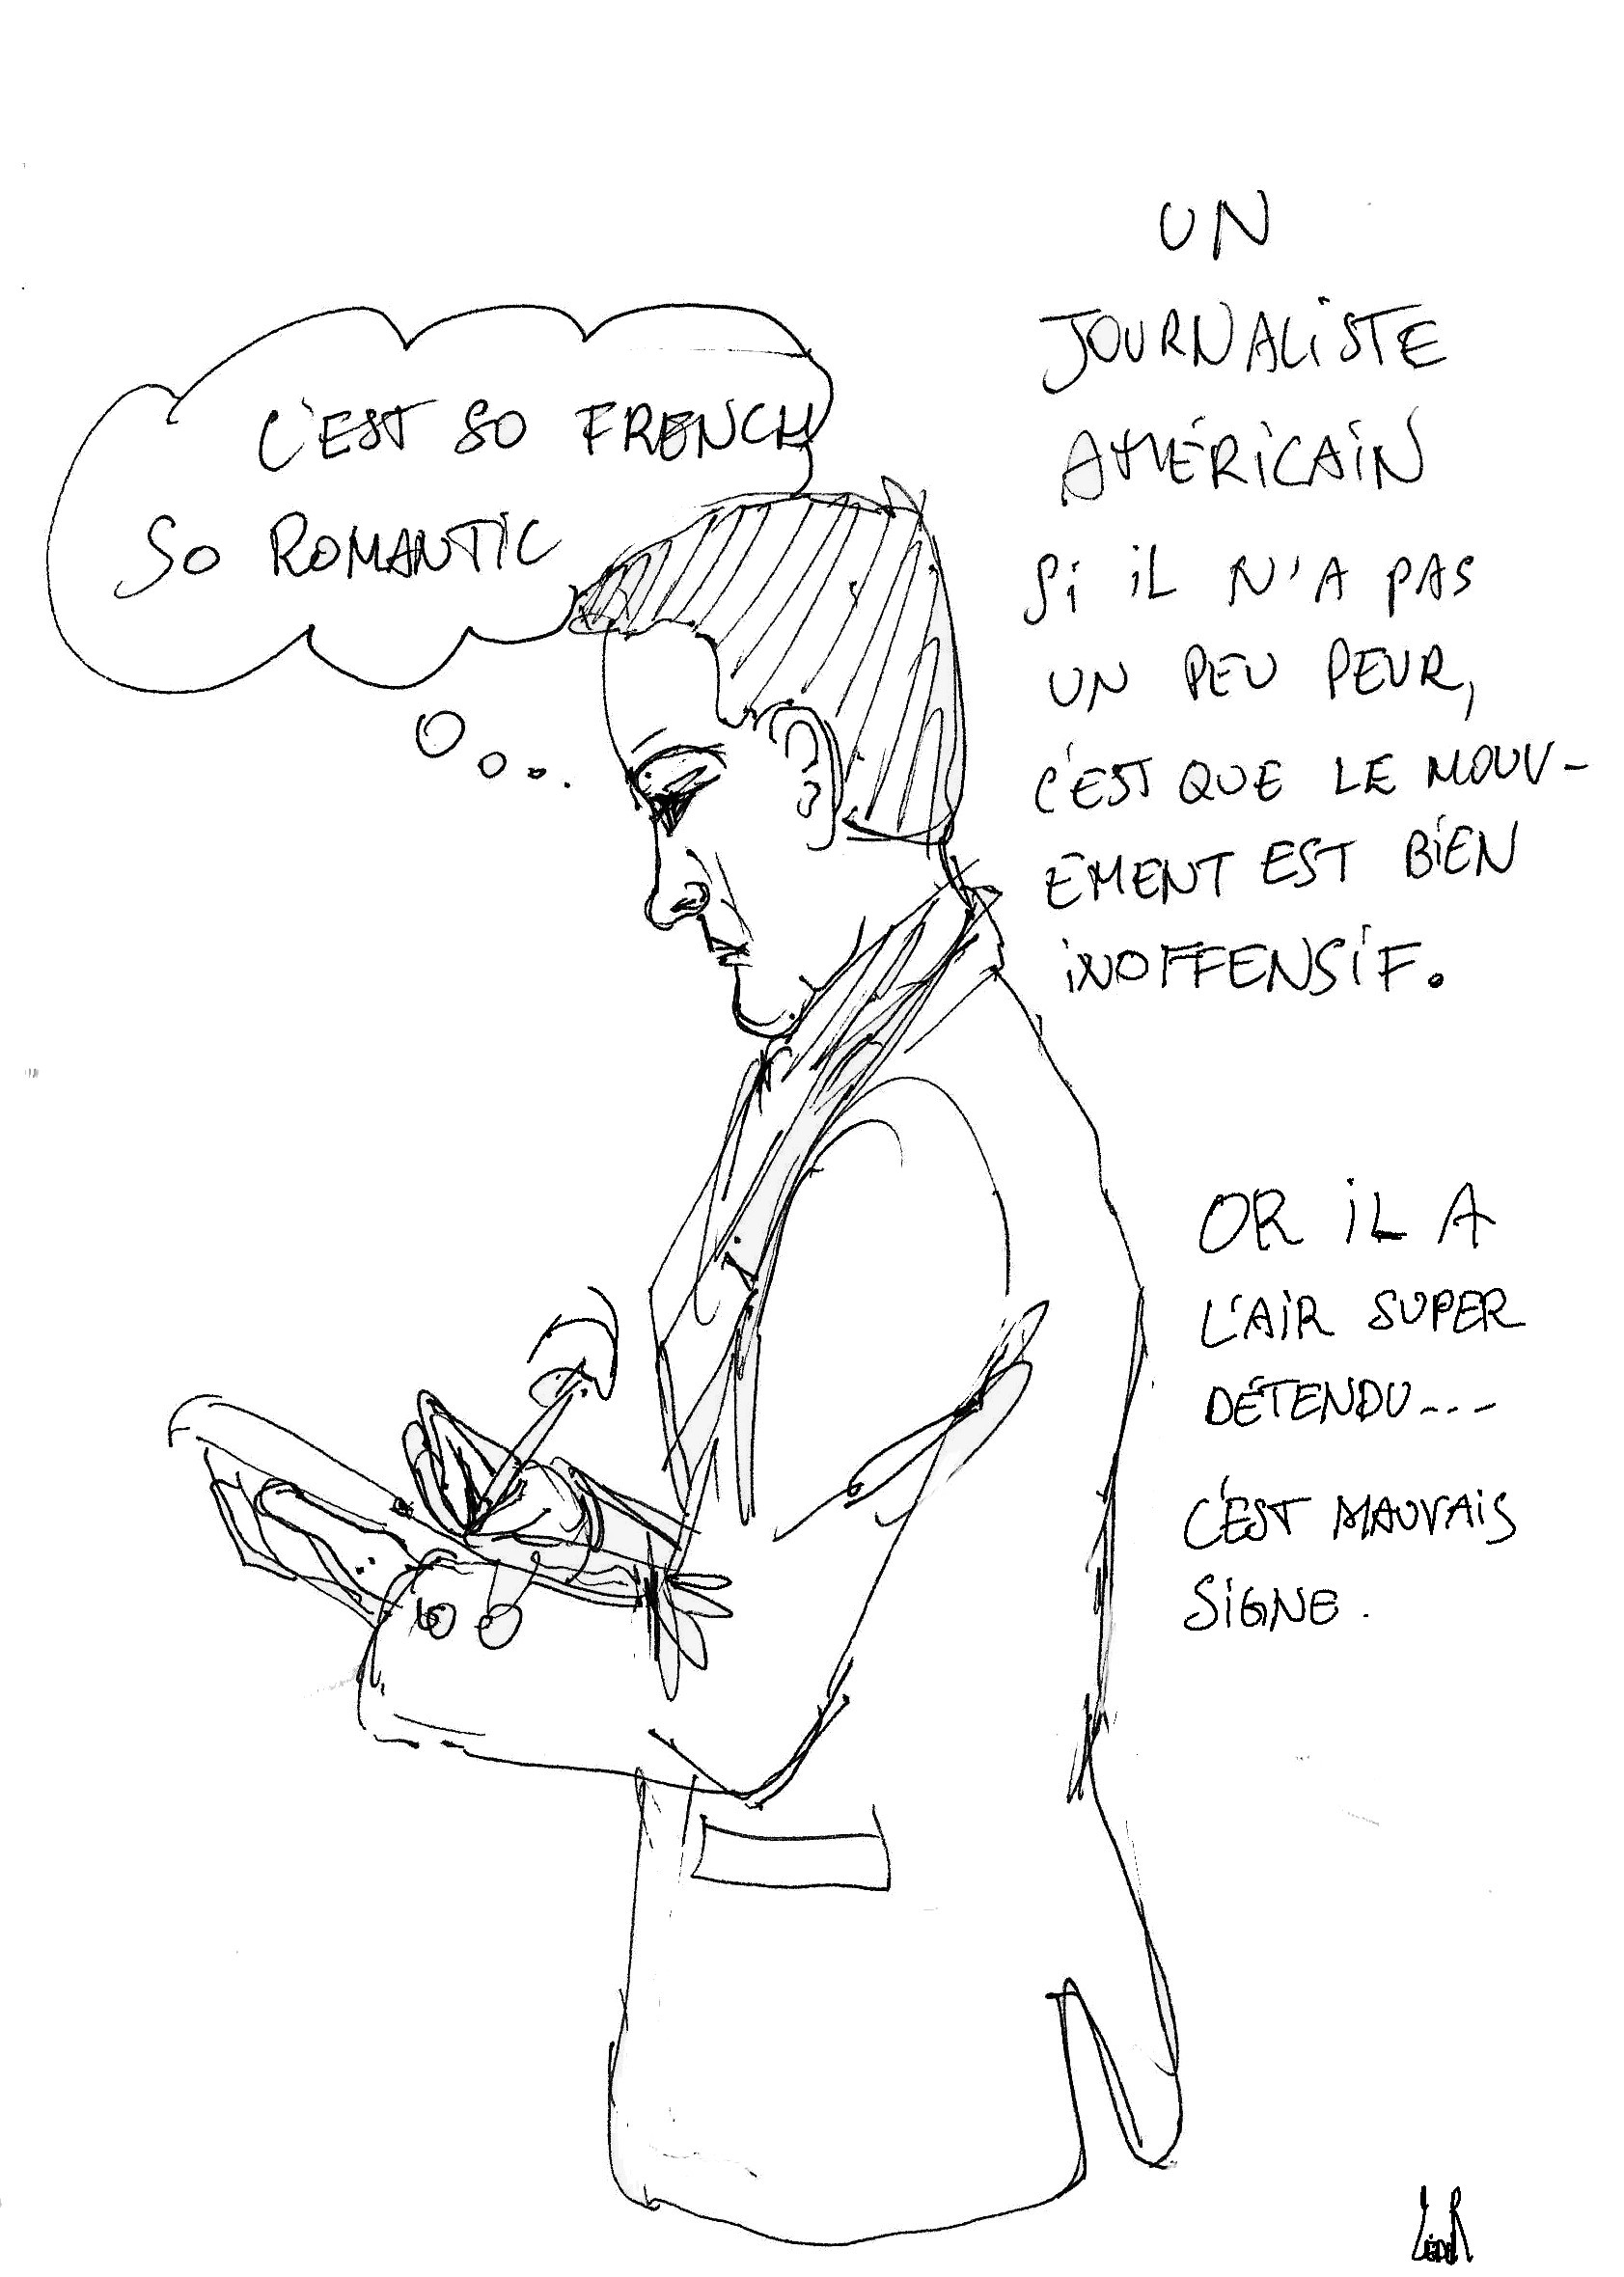 C'EST SO FRENCH
SO ROMANTIC
UN
JOURNALISTE
AMÉRICAIN
SI IL N'A PAS
UN PEU PEUR,
C'EST QUE LE MOUV-
EMENT EST BIEN
INOFFENSIF.
OR IL A
L'AIR SUPER
DÉTENDU---
C'EST MAUVAIS
SIGNE.